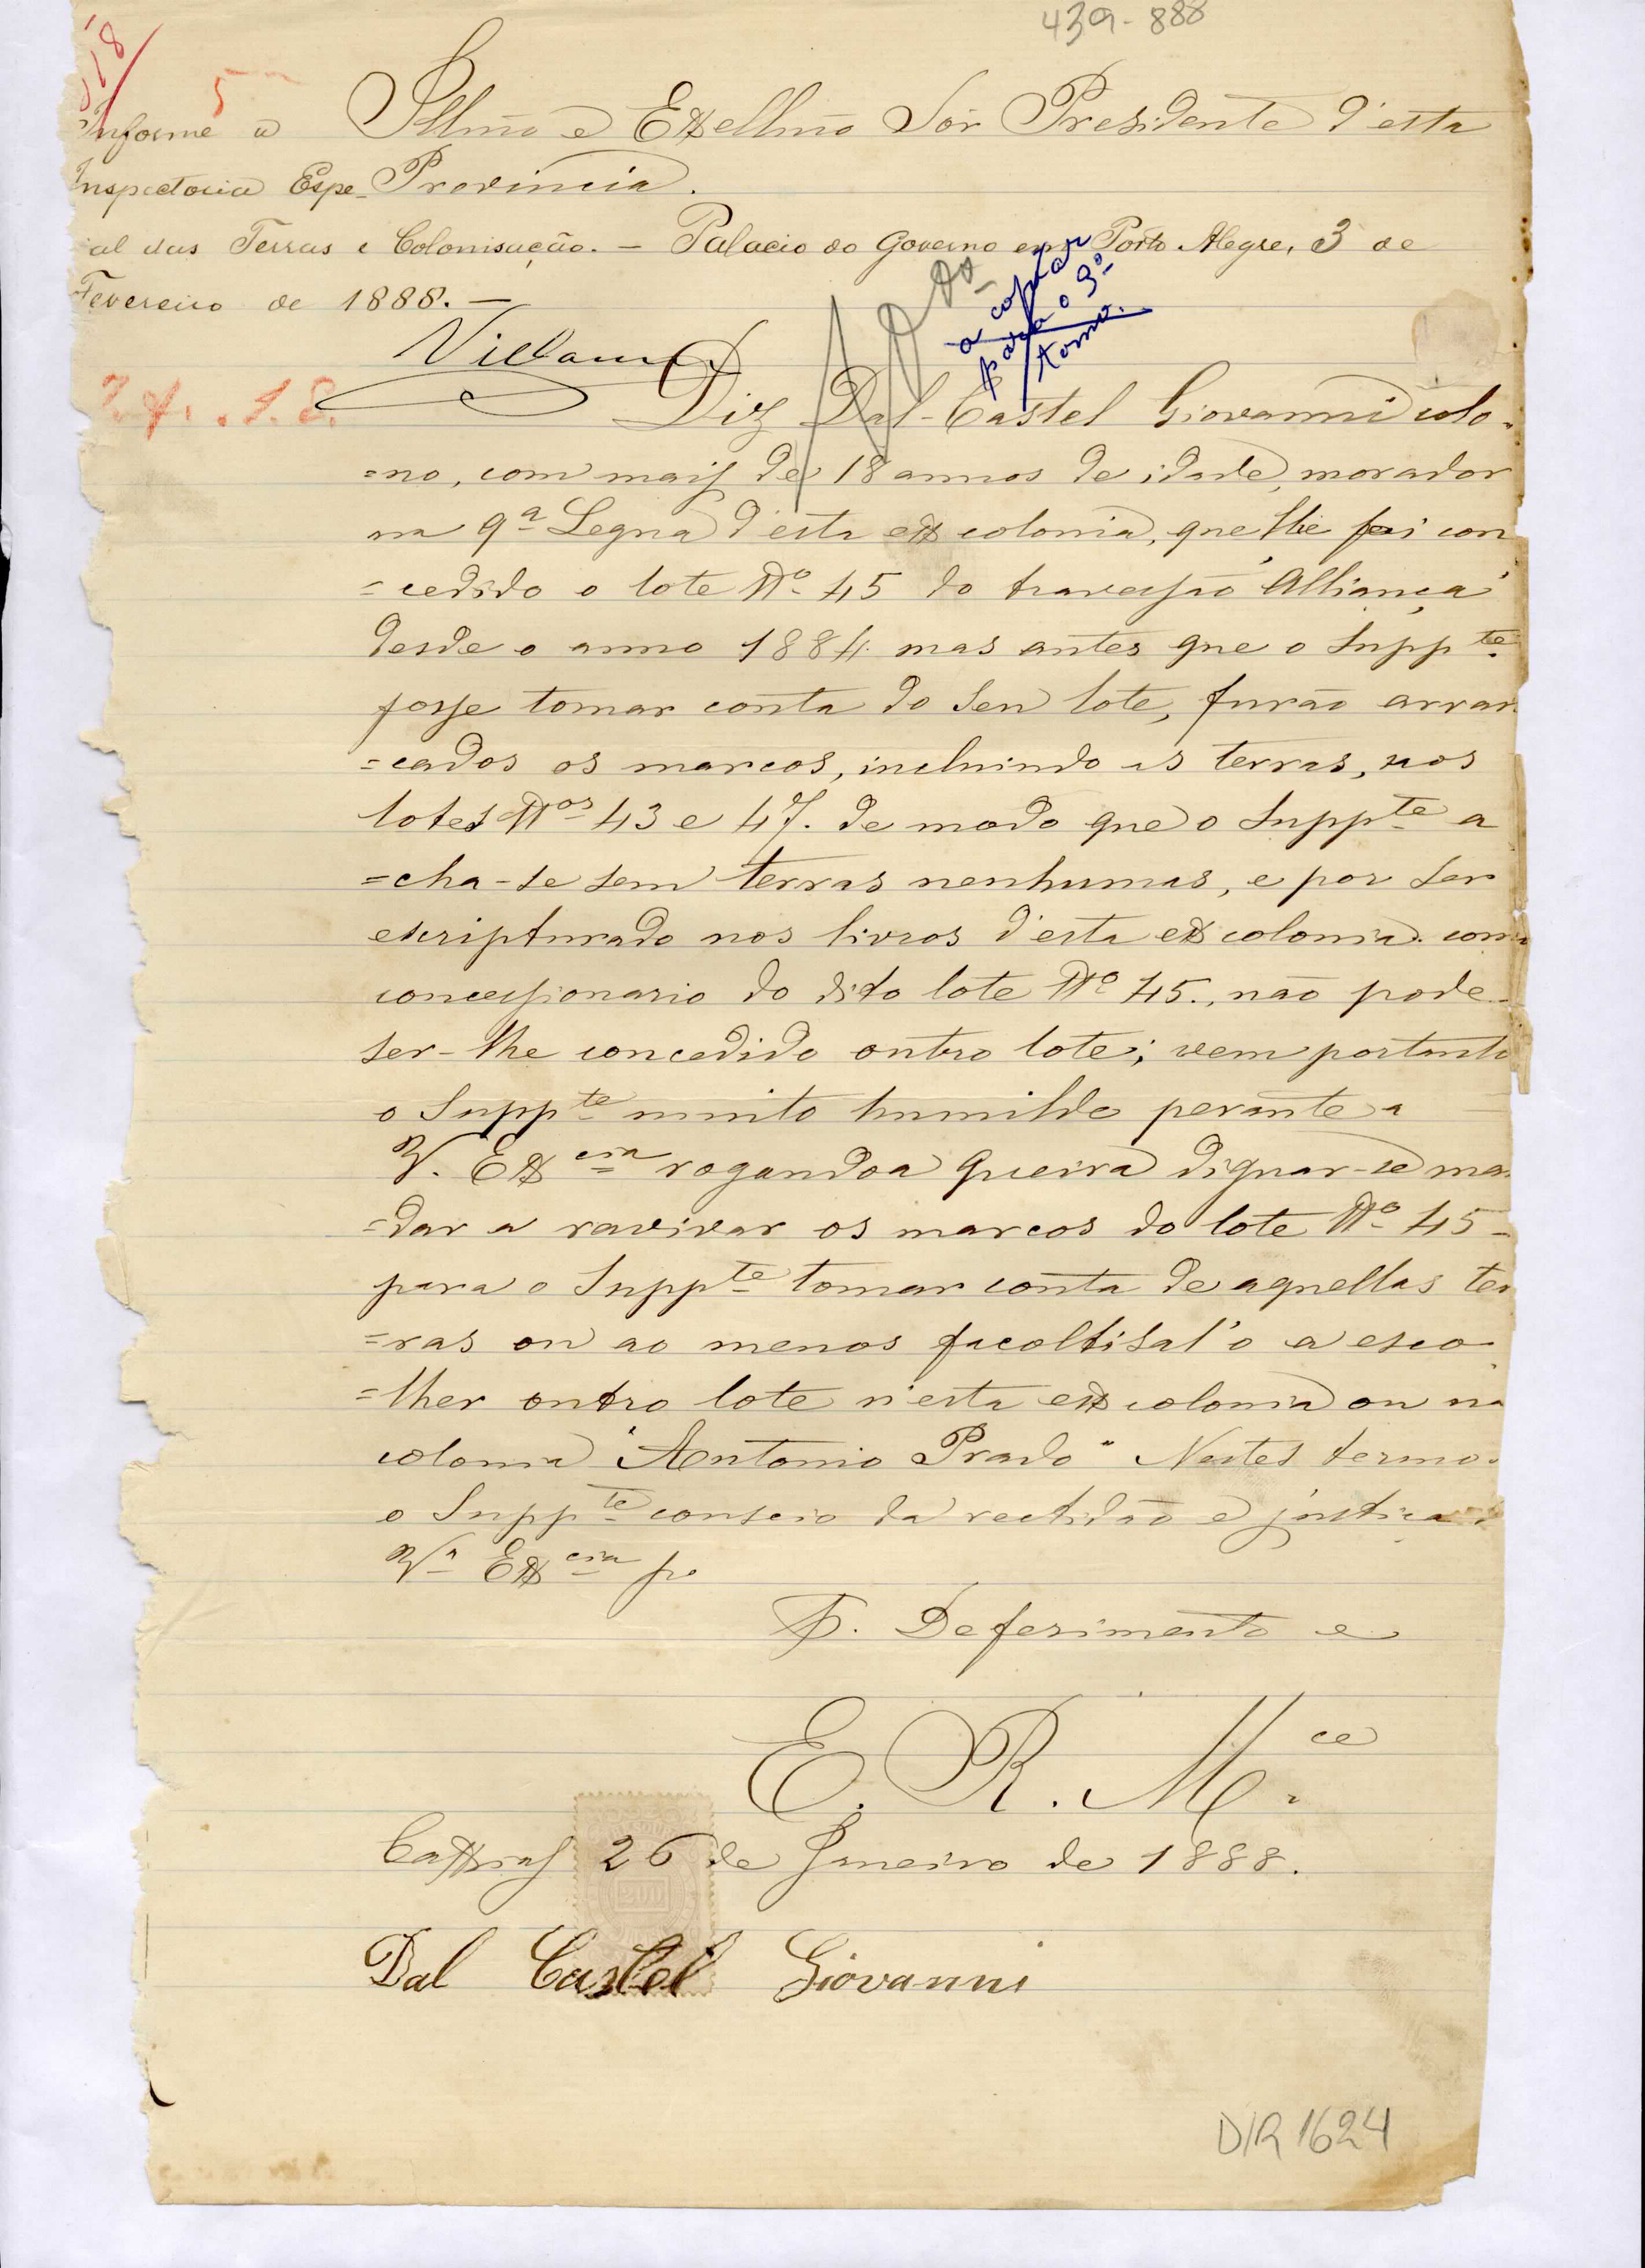 439-888
5
Illmo e Exellmo Sor Presidente d'esta
Provincia.
Informe a
Inspectoria Espe-
cial das Terras e Colonisação. — Palacio do Governo em Porto Alegre, 3 de
Fevereiro de 1888. —
a copiar
para o 3º
tomo.
Diz Dal-Castel Giovanni colo-
=no, com mais de 18 annos de idade, morador
na 9ª Legua d'esta ex colonia, que lhe foi con
=cedido o lote Nº 45 do travessão "Alliança"
desde o anno 1884. mas antes que o Suppte
posse tomar conta do seu lote, furão arran
=cados os marcos, incluindo as terras, nos
lotes Nos 43 e 47. de modo que o Suppte a
=cha-se sem terras nenhumas, e por ser
escripturado nos livros d'esta ex colonia. como
concessionario do dito lote Nº 45., não pode
ser-lhe concedido outro lote; vem portanto
o Suppte muito humilde perante a
V. Excia rogandoa queira dignar-se man
=dar a ravivar os marcos do lote Nº 45-
para o Suppte tomar conta de aquellas ter
=ras ou ao menos facoltisal'o a esco
=lher outro lote n'esta ex colonia ou na
colonia "Antonio Prado" Nestes termos
o Suppte conscio da rectidão e justiça
Vª Excia p.
P. Deferimento e
E. R. Mce
Caxias 26 de Janeiro de 1888.
200
Dal Castel Giovanni
DIR 1624